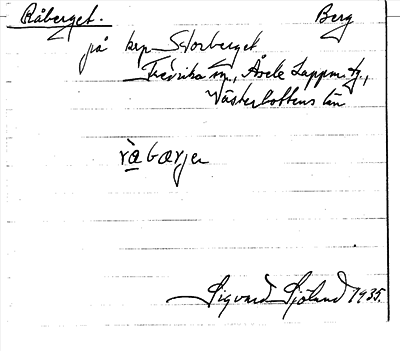 Råberget. Berg
på krp Storberget
Fredrika sn., Åsele Lappm. tg.,
Västerbottens län
Sigvard Sjölund 1935.